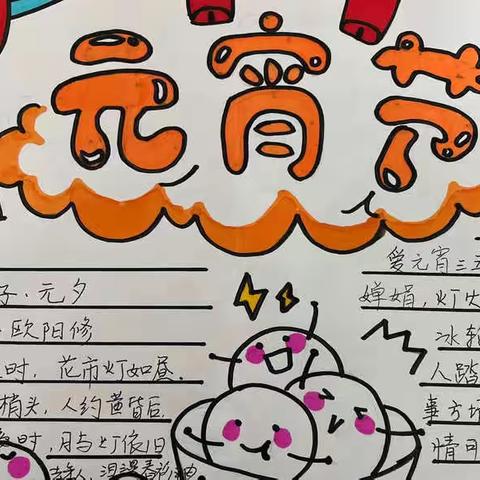 元宵节
子·元夕
欧阳修
时，花市灯如昼.
梢头，人约黄昏后
时，月与灯依旧
泪湿春衫袖
爱元宵三五
婵娟，灯火
冰轮
人踏
事方
情月